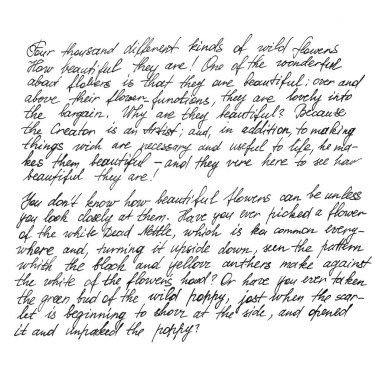 Four thousand different kinds of wild flowers
How beautiful they are! One of the wonderful
about flowers is that they are beautiful; over and
above their flower-functions, they are lovely into
the bargain. Why are they beautiful? Because
the Creator is an Artist; and, in addition, to making
things wich are necessary and useful to life, he ma-
kes them beautiful – and they were here to see how
beautiful they are!
You don't know how beautiful flowers can be unless
you look closely at them. Have you ever picked a flower
of the white Dead Nettle, which is common every-
where and, turning it upside down, seen the pattern
which the black and yellow anthers make against
the white of the flower's hood? Or have you ever taken
the green bud of the wild poppy, just when the scar-
let is beginning to show at the side, and opened
it and unpacked the poppy?